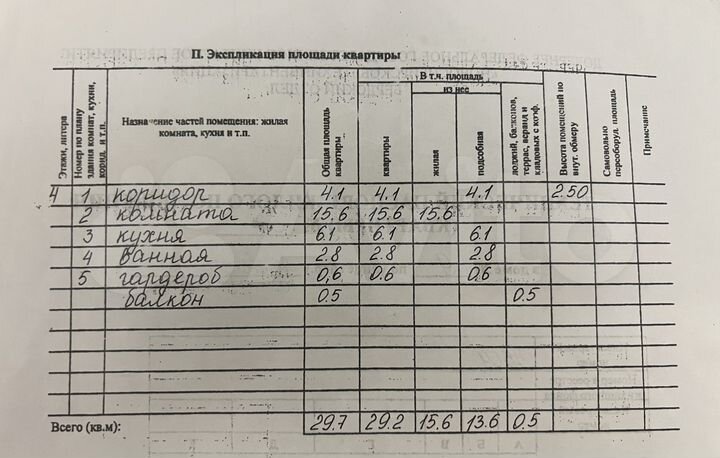 II. Экспликация площади квартиры
Этажи, литера
Номер по плану здания комнат, кухни, корид. и т.п.
Назначение частей помещения: жилая комната, кухня и т.п.
Общая площадь квартиры
В т.ч. площадь
квартиры
из нее
жилая
подсобная
лоджий, балконов, террас, веранд и кладовых с коэф.
Высота помещений по внут. обмеру
Самовольно переоборул. площадь
Примечание
4 1 коридор 4.1 4.1 4.1 2.50
2 комната 15.6 15.6 15.6
3 кухня 6.1 6.1 6.1
4 ванная 2.8 2.8 2.8
5 гардероб 0,6 0.6 0.6
балкон 0.5 0.5
Всего (кв.м): 29.7 29.2 15.6 13.6 0.5